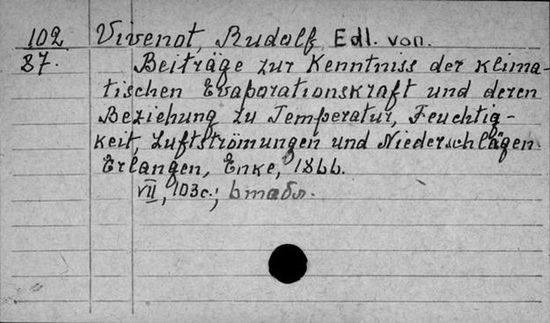 102 Vivenot, Rudolf, Edl. von.
87. Beiträge zur Kenntniss der klima-
tischen Evaporationskraft und deren
Beziehung zu Temperatur, Feuchtig-
keit, Luftströmungen und Niederschlägen.
Erlangen, Enke, 1866.
VII, 103c.;